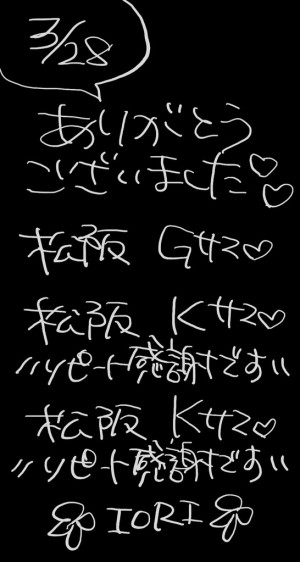 3/28
ありがとう
ございました♡♡
松阪 Gサマ♡
松阪 Kサマ♡
〃リピート感謝です〃
松阪 Kサマ♡
〃リピート感謝です〃
IORI